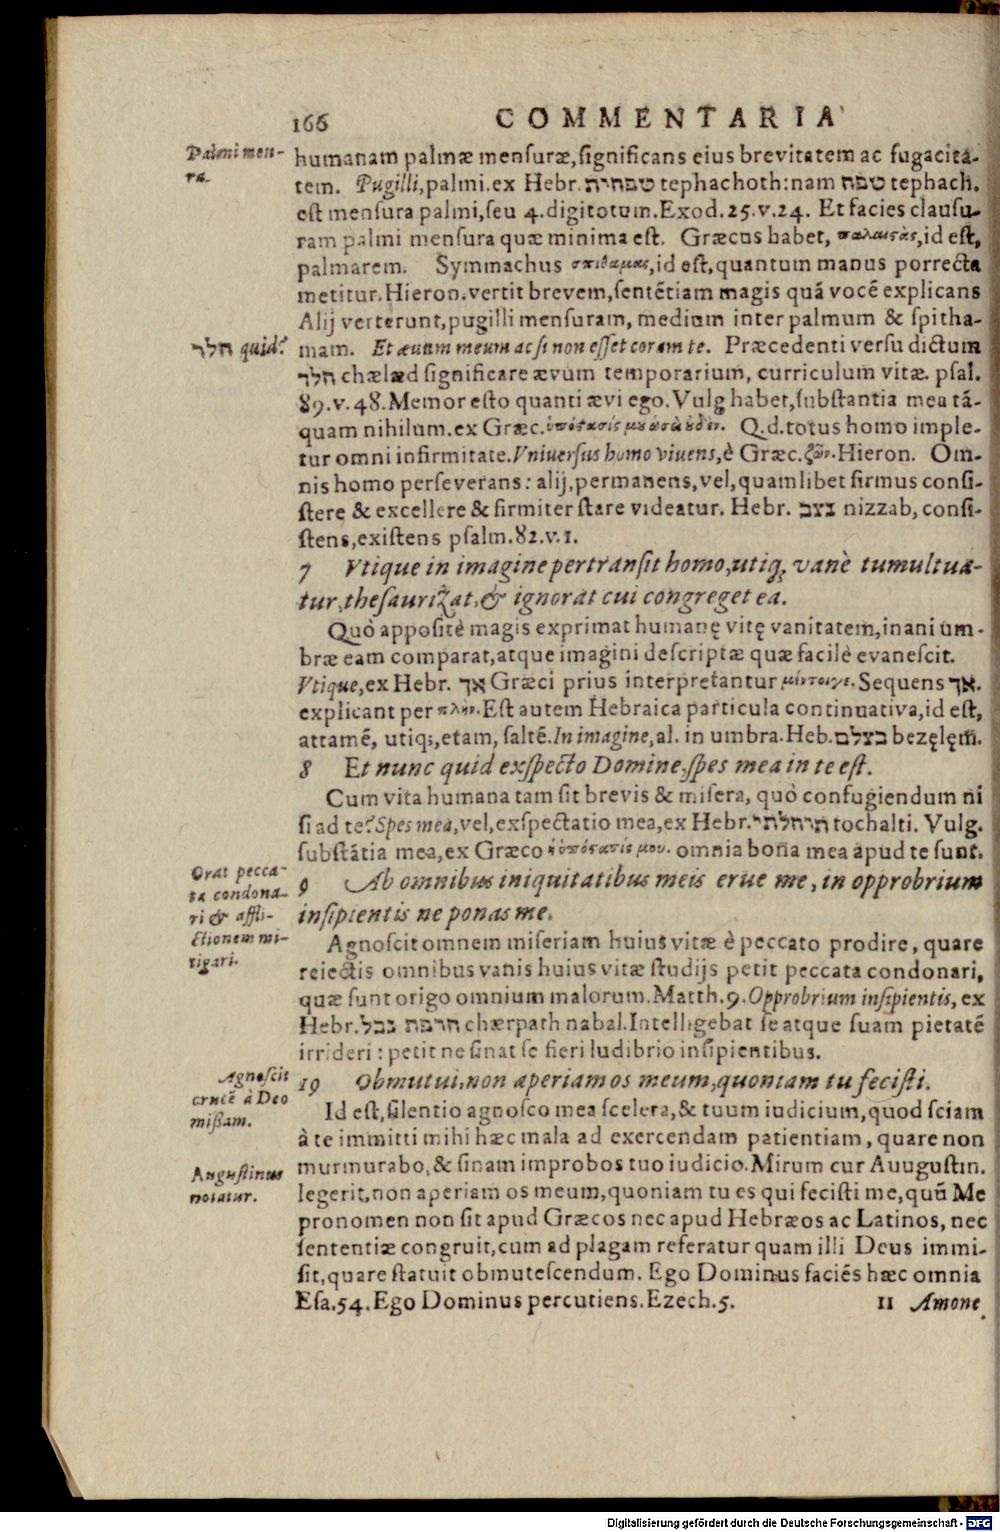 166 COMMENTARIA
Palmi men-
ra.
humanam palmæ mensuræ, significans eius brevitatem ac fugacita-
tem. Pugilli, palmi. ex Hebr. טפחות tephachoth: nam טפח tephach.
est mensura palmi, seu 4. digitotum. Exod. 25. v. 24. Et facies clausu-
ram palmi mensura quæ minima est. Græcus habet, παλαιϛὰς, id est,
palmarem. Symmachus σπιθαμας, id est, quantum manus porrecta
metitur. Hieron. vertit brevem, sentẽtiam magis quã vocẽ explicans
Alij verterunt, pugilli mensuram, medium inter palmum & spitha-
חלד quid?
mam. Et ævum meum ac si non esset coram te. Præcedenti versu dictum
חלד chælæd significare ævum temporarium, curriculum vitæ. psal.
89. v. 48. Memor esto quanti ævi ego. Vulg habet, substantia mea tã-
quam nihilum. ex Græc. ὑπόϛασίς μου ὡσὰ οὐδὲν. Q.d. totus homo imple-
tur omni infirmitate. Vniversus homo vivens, è Græc. ζῶν. Hieron. Om-
nis homo perseverans: alij, permanens, vel, quamlibet firmus consi-
stere & excellere & firmiter stare videatur. Hebr. נצב nizzab, consi-
stens, existens psalm. 82. v. 1.
7 Vtique in imagine pertransit homo, utiq; vanè tumultua-
tur, thesaurizat, & ignorat cui congreget ea.
Quò appositè magis exprimat humanę vitę vanitatem, inani um-
bræ eam comparat, atque imagini descriptæ quæ facilè evanescit.
Vtique, ex Hebr. אך Græci prius interpretantur μέντοιγε. Sequens אך.
explicant per πλὴν. Est autem Hebraica particula continuativa, id est,
attamẽ, utiq;, etam, saltẽ. In imagine, al. in umbra. Heb. בצלם bezęlęm.
8 Et nunc quid exspecto Domine, spes mea in te est.
Cum vita humana tam sit brevis & misera, quò confugiendum ni
si ad te? Spes mea, vel, exspectatio mea, ex Hebr. תוחלתי tochalti. Vulg.
substãtia mea, ex Græco ἡ ὑπόϛασίς μου. omnia bona mea apud te sunt.
Orat pecca-
ta condona-
ri & affli-
ctionem mi-
tigari.
9 Ab omnibus iniquitatibus meis erue me, in opprobrium
insipientis ne ponas me.
Agnoscit omnem miseriam huius vitæ è peccato prodire, quare
reiectis omnibus vanis huius vitæ studijs petit peccata condonari,
quæ sunt origo omnium malorum. Matth. 9. Opprobrium insipientis, ex
Hebr. חרפת נבל chærpath nabal. Intelligebat se atque suam pietatẽ
irrideri: petit ne sinat se fieri ludibrio insipientibus.
Agnoscit
crucẽ à Deo
missam.
10 Obmutui, non aperiam os meum, quoniam tu fecisti.
Id est, silentio agnosco mea scelera, & tuum iudicium, quod sciam
à te immitti mihi hæc mala ad exercendam patientiam, quare non
Augustinus
notatur.
murmurabo, & sinam improbos tuo iudicio. Mirum cur Auugustin.
legerit, non aperiam os meum, quoniam tu es qui fecisti me, quũ Me
pronomen non sit apud Græcos nec apud Hebræos ac Latinos, nec
sententiæ congruit, cum ad plagam referatur quam illi Deus immi-
sit, quare statuit obmutescendum. Ego Dominus faciẽs hæc omnia
Esa. 54. Ego Dominus percutiens. Ezech. 5.
11 Amone
Digitalisierung gefördert durch die Deutsche Forschungsgemeinschaft - DFG